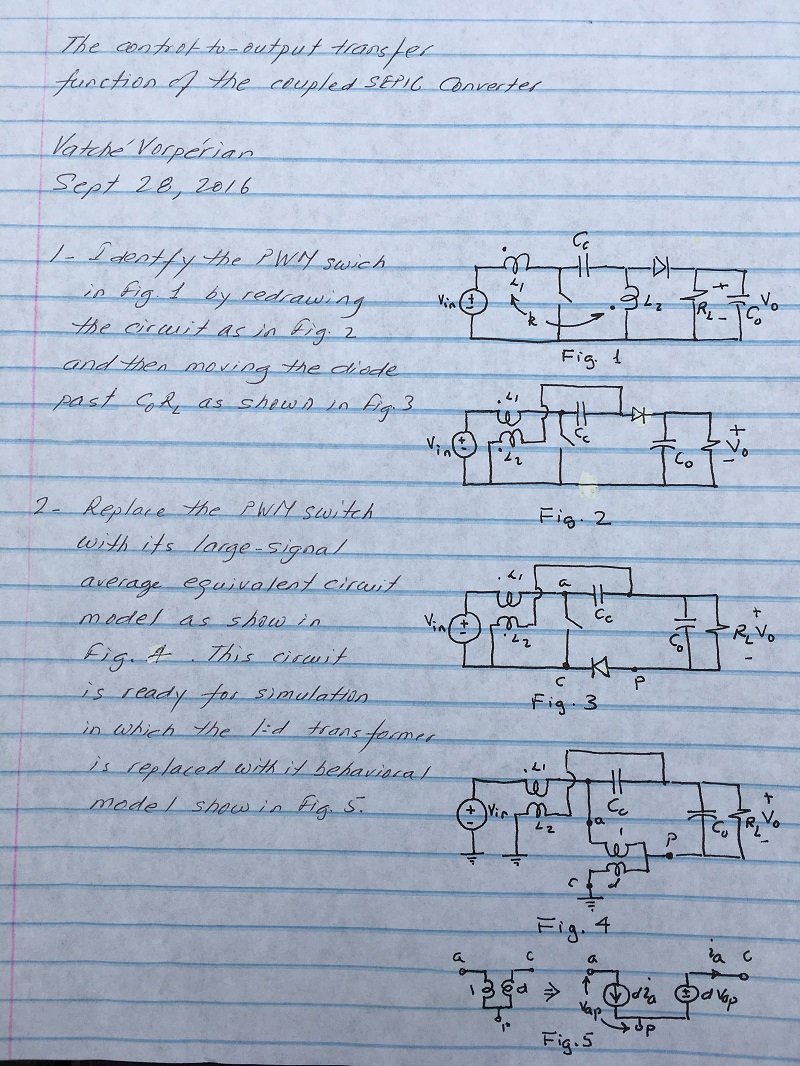 The control-to-output transfer
function of the coupled SEPIC Converter
Vatché Vorpérian
Sept 28, 2016
1- Identfy the PWM swich
in fig. 1 by redrawing
the circuit as in fig. 2
and then moving the diode
past CoRL as shown in fig. 3
L1
Cc
Vin
k
L2
RL
+
-
Co
Vo
Fig. 1
L1
Vin
L2
Cc
Co
+
Vo
-
Fig. 2
2- Replace the PWM switch
with its large-signal
average equivalent circuit
model as show in
Fig. 4. This circuit
is ready for simulation
in which the 1:d transformer
is replaced with it behavioral
model show in fig. 5.
L1
a
Vin
L2
Cc
Co
RL
+
Vo
-
c
p
Fig. 3
L1
Vin
L2
Cc
a
1
d
c
P
Co
RL
+
Vo
-
Fig. 4
a
c
1
d
p
⇒
a
Vap
dia
p
dVap
ia
c
Fig. 5